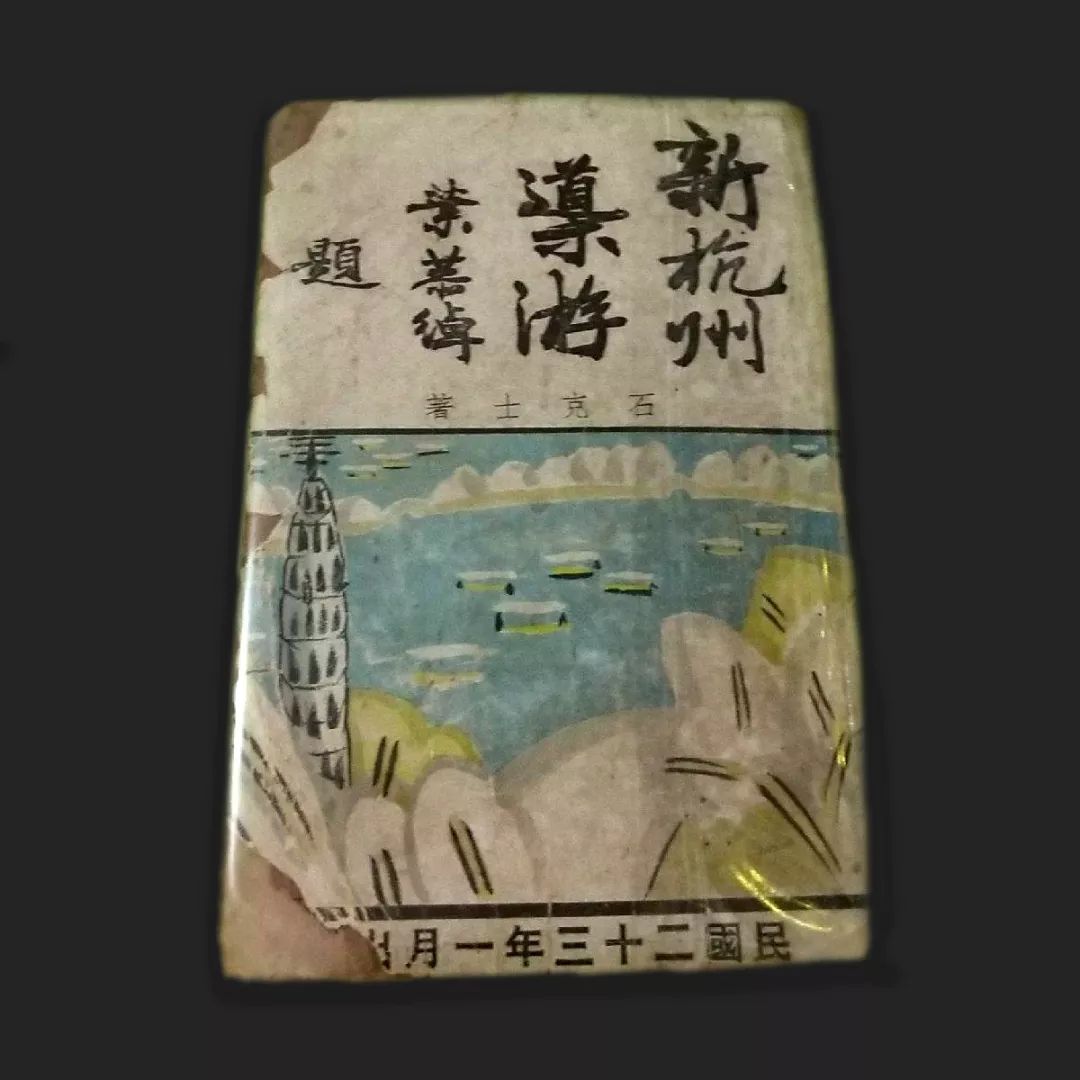 新杭州
導游
葉恭綽
題
石克士著
民國二十三年一月出